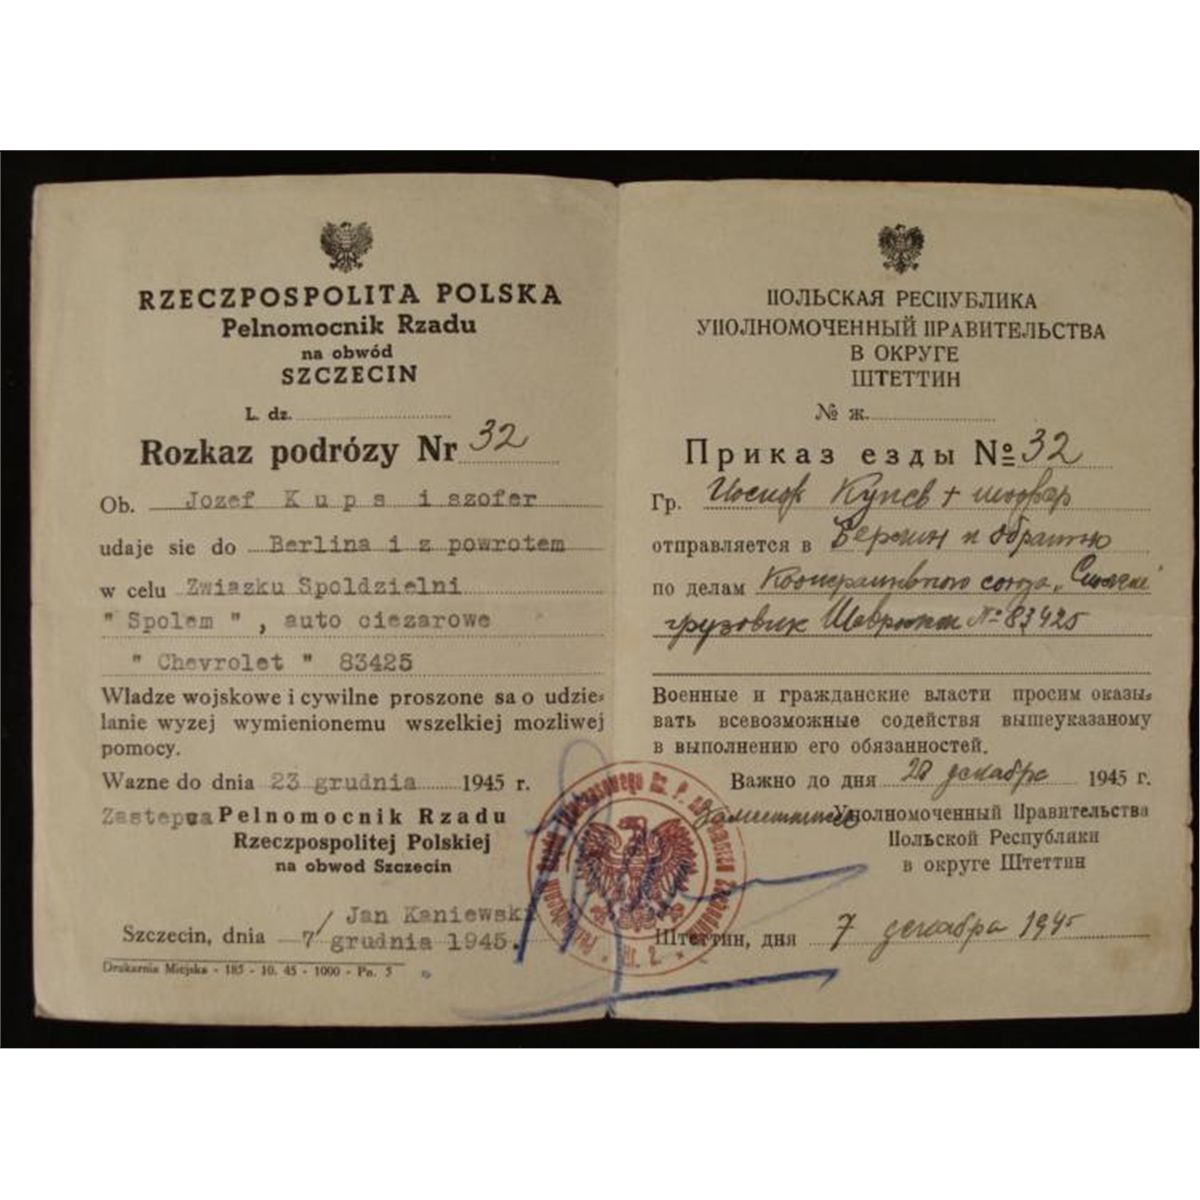 RZECZPOSPOLITA POLSKA
Pelnomocnik Rzadu
na obwód
SZCZECIN
L. dz.
Rozkaz podrózy Nr 32
Ob. Jozef Kups i szofer
udaje sie do Berlina i z powrotem
w celu Zwiazku Spoldzielni
" Spolem " , auto ciezarowe
" Chevrolet " 83425
Wladze wojskowe i cywilne proszone sa o udzie-
lanie wyzej wymienionemu wszelkiej mozliwej
pomocy.
Wazne do dnia 23 grudnia 1945 r.
Zastepca Pelnomocnik Rzadu
Rzeczpospolitej Polskiej
na obwod Szczecin
Jan Kaniewski
Szczecin, dnia 7/ grudnia 1945.
Drukarnia Miejska - 185 - 10. 45 - 1000 - Pn. 5
ПОЛЬСКАЯ РЕСПУБЛИКА
УПОЛНОМОЧЕННЫЙ ПРАВИТЕЛЬСТВА
В ОКРУГЕ
ШТЕТТИН
№ ж.
Приказ езды № 32
Гр. Иосиф Купс + шофер
отправляется в Берлин и обратно
по делам Кооперативного союза
грузовик Шевролет № 83425
Военные и гражданские власти просим оказы-
вать всевозможные содействя вышеуказаному
в выполнению его обязанностей.
Важно до дня декабря 1945 г.
Заместитель Уполномоченный Правительства
Польской Республики
в округе Штеттин
Штеттин, дня 7 декабря 1945